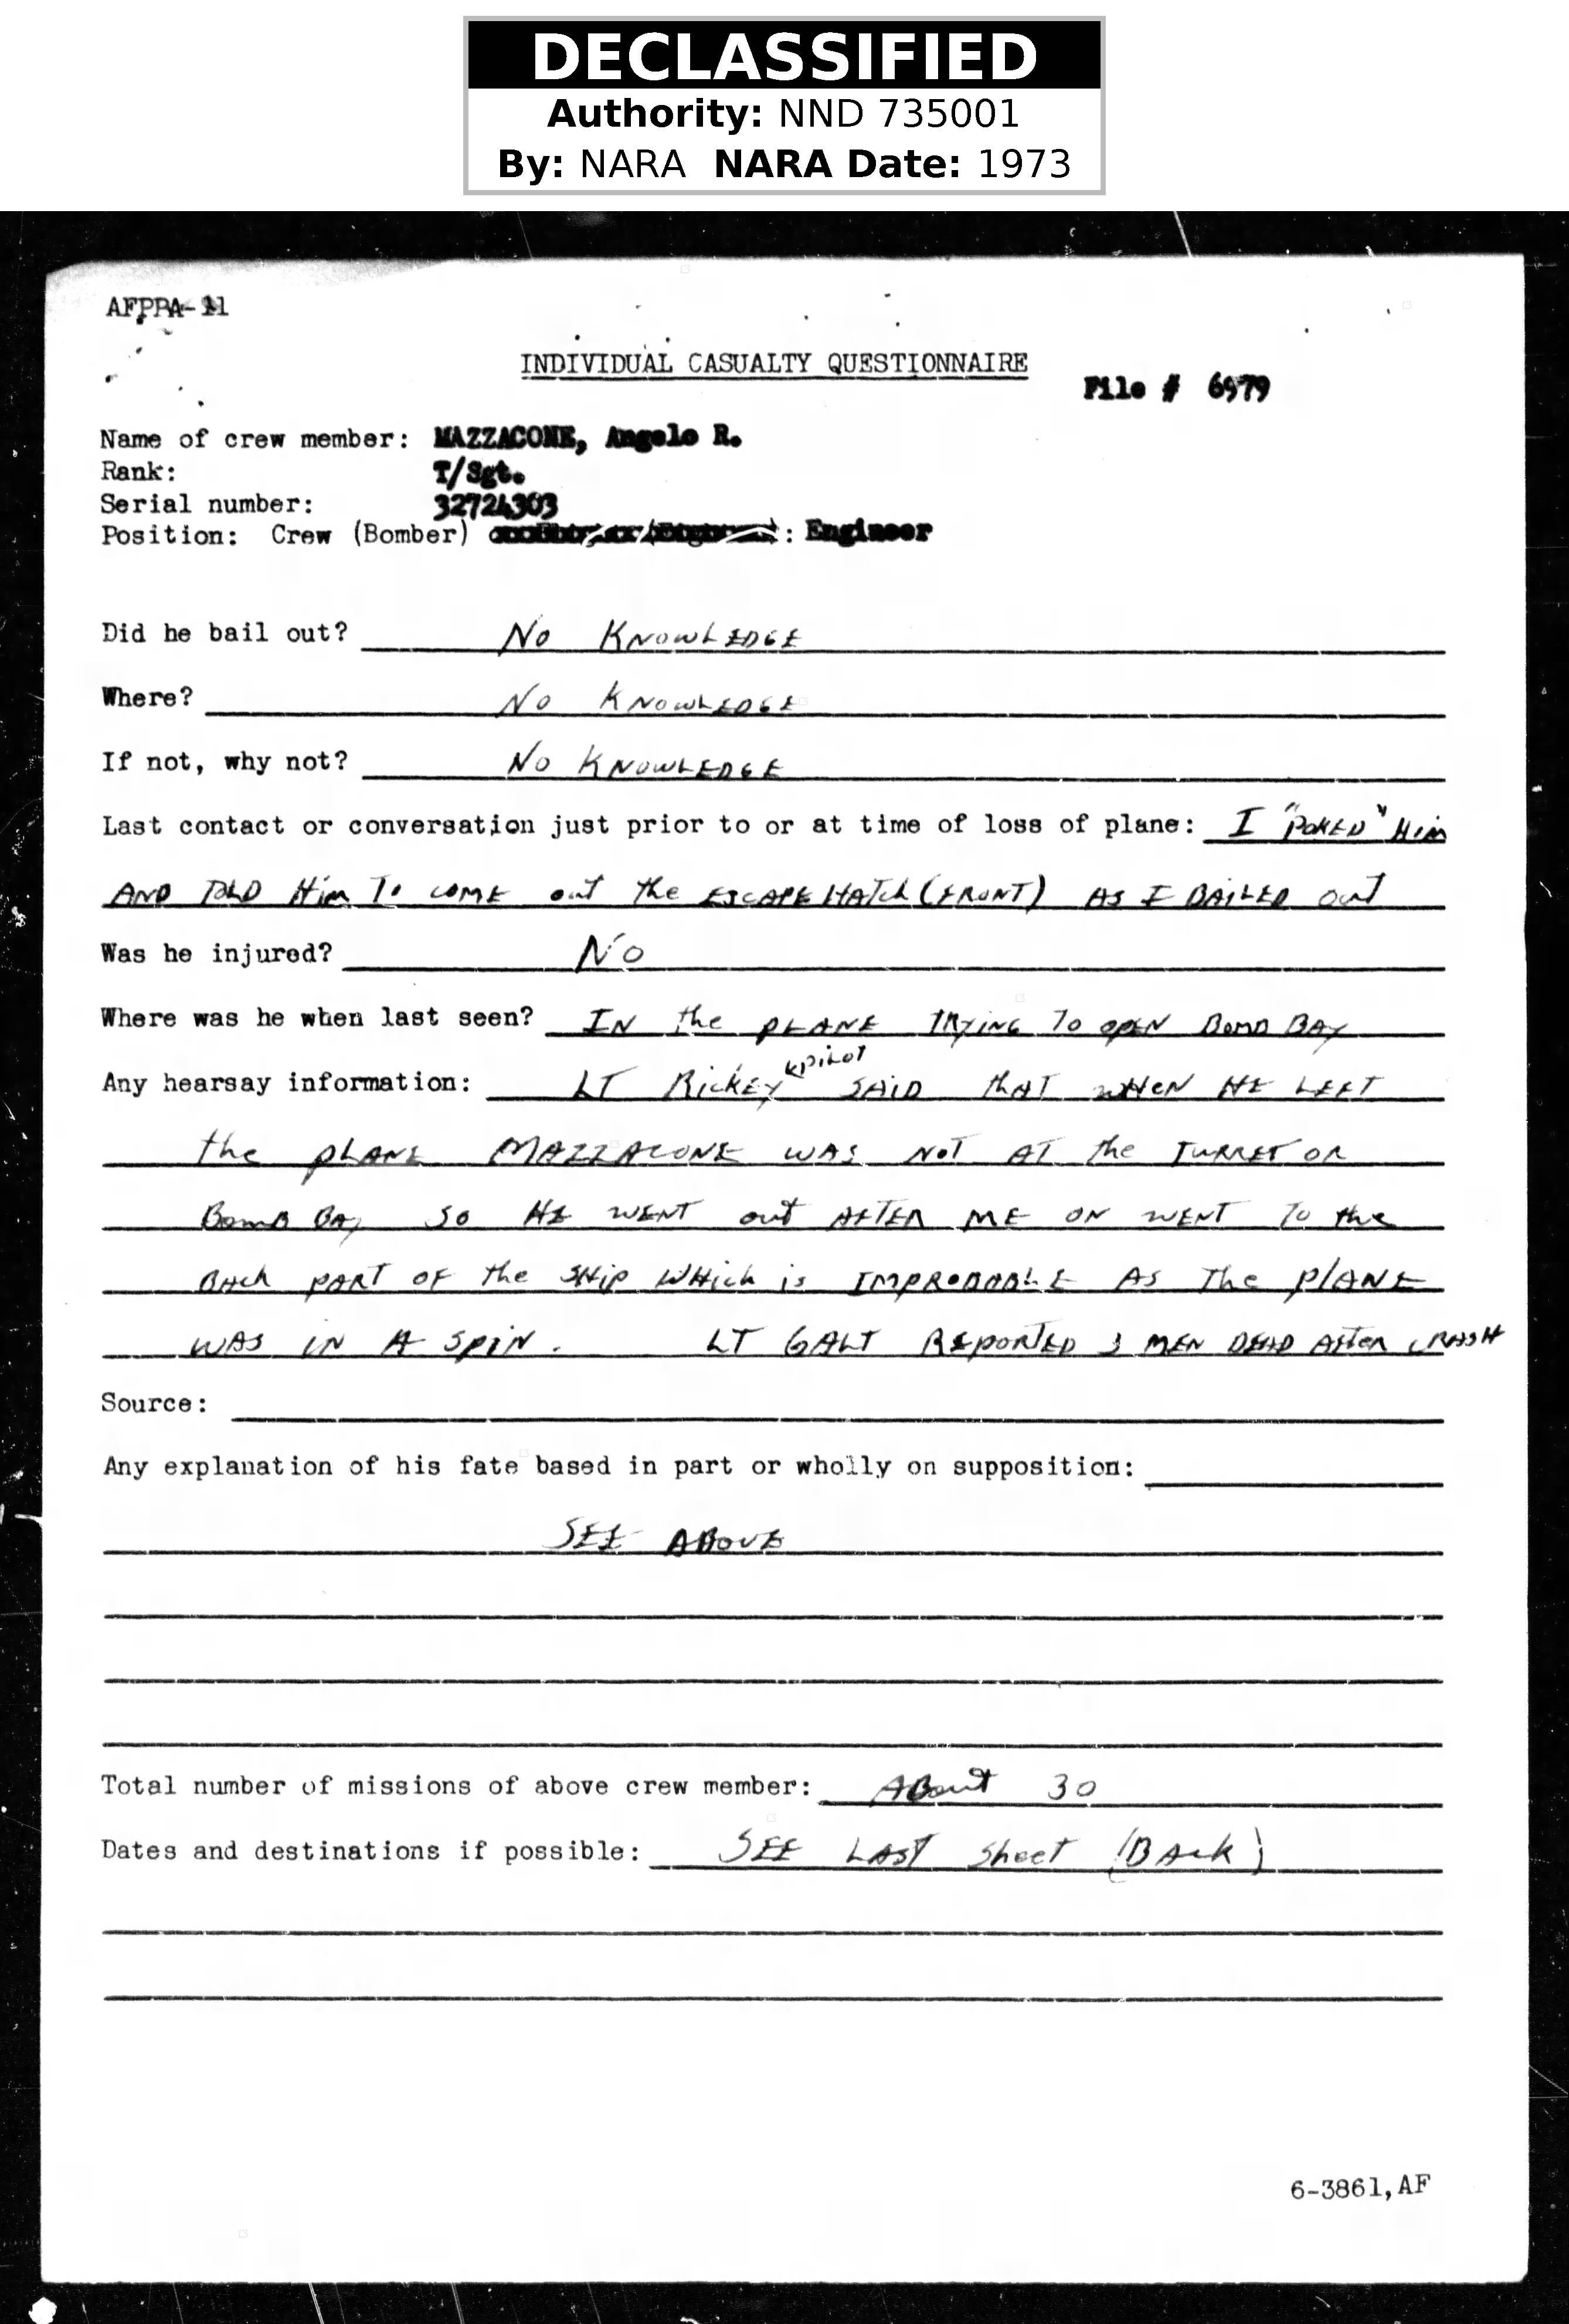 DECLASSIFIED
Authority: NND 735001
By: NARA NARA Date: 1973
AFPPA-11
INDIVIDUAL CASUALTY QUESTIONNAIRE
File # 6979
Name of crew member: MAZZACONE, Angelo R.
Rank: T/Sgt.
Serial number: 32724303
Position: Crew (Bomber) : Engineer
Did he bail out? No KNOWLEDGE
Where? No KNOWLEDGE
If not, why not? No KNOWLEDGE
Last contact or conversation just prior to or at time of loss of plane: I "POKED" Him
AND TOLD Him To COME out the ESCAPE HATCH (FRONT) AS I BAILED out
Was he injured? No
Where was he when last seen? IN the PLANE TRYING To OPEN BOMB BAY
PILOT
Any hearsay information: LT RICKEY SAID thAT WHEN HE LEFT
the PLANE MAZZACONE WAS NOT AT the TURRET OR
BOMB BAY SO HE WENT out AFTER ME OR WENT To the
BACK PART OF the SHIP WHich is IMPROBABLE AS The PLANE
WAS IN A SPIN. LT GALT REPORTED 3 MEN DEAD AFTER CRASH
Source:
Any explanation of his fate based in part or wholly on supposition:
SEE ABOVE
Total number of missions of above crew member: ABout 30
Dates and destinations if possible: SEE LAST Sheet (BAck)
6-3861,AF